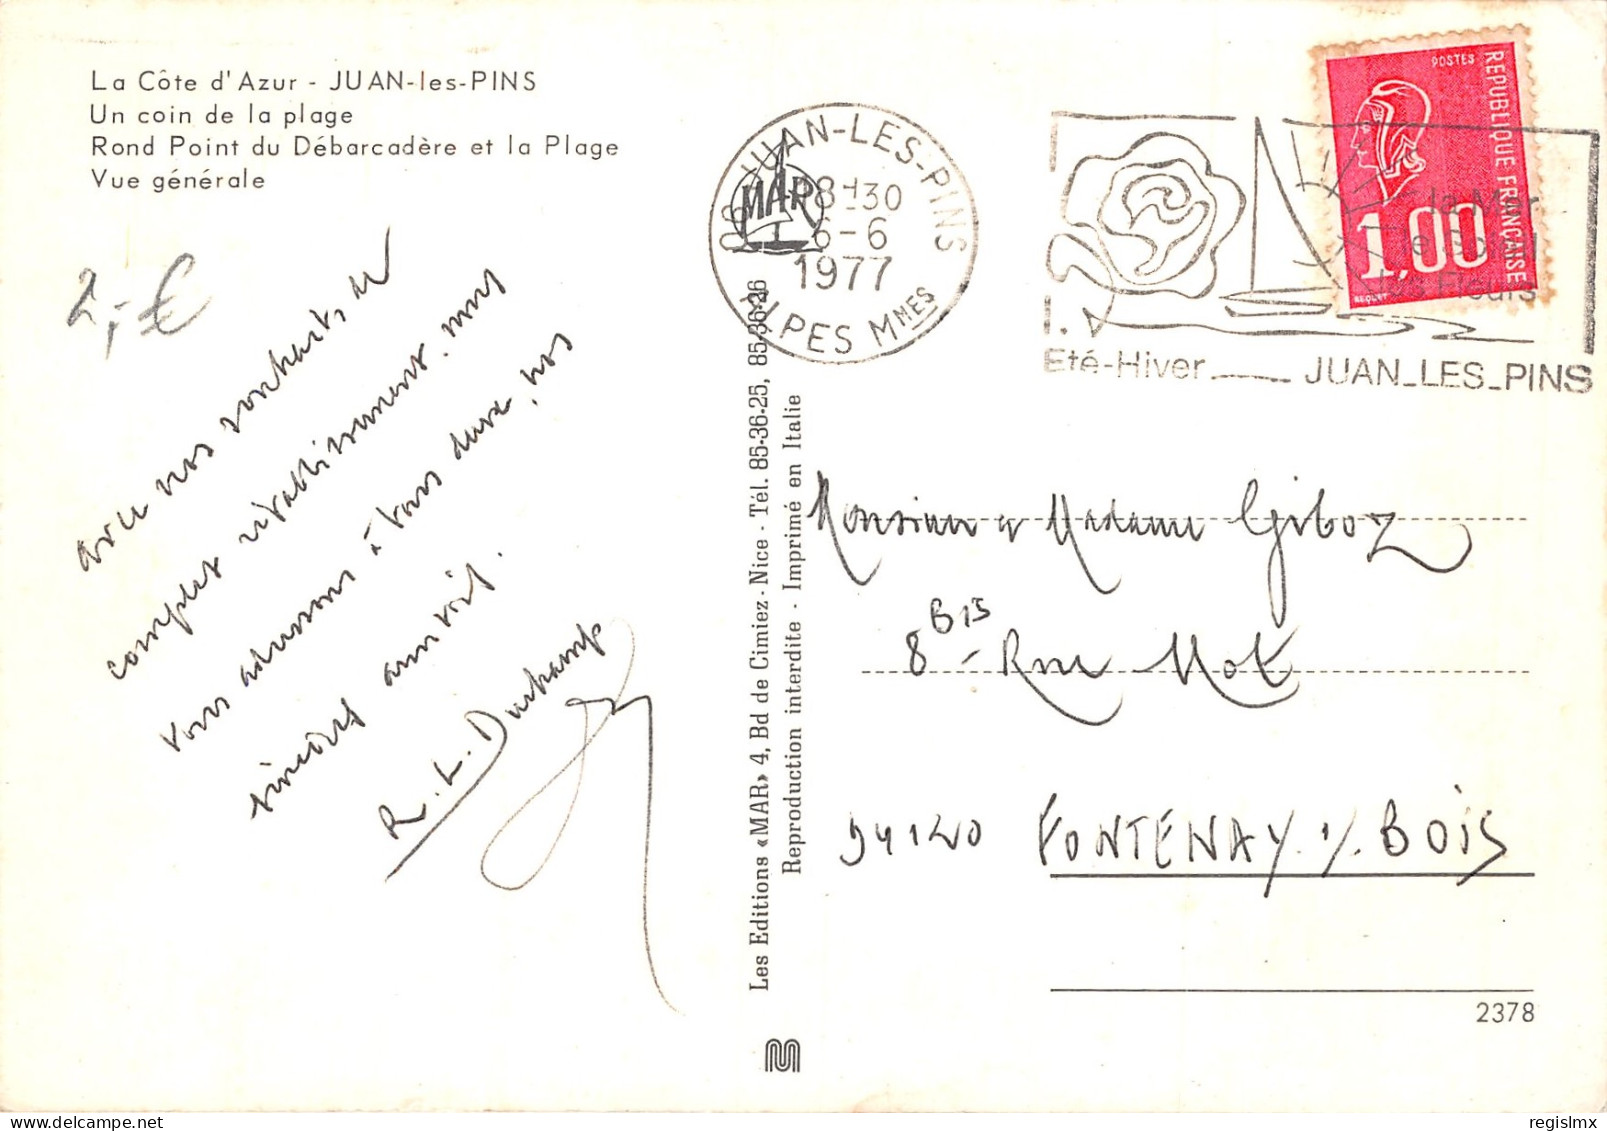 La Côte d'Azur - JUAN-les-PINS
Un coin de la plage
Rond Point du Débarcadère et la Plage
Vue générale
2,-€
avec nos souhaits de
complet rétablissement, nous
vous adressons à tous deux, nos
sincères amitiés.
R. L. Duchamp
Les Editions «MAR» 4, Bd de Cimiez - Nice - Tél. 85-36-25, 85-36-26
Reproduction interdite - Imprimé en Italie
MAR
06 JUAN-LES-PINS
18H30
6-6
1977
ALPES MMES
la Mer
le Soleil
les Fleurs
Eté-Hiver JUAN_LES_PINS
POSTES
REPUBLIQUE FRANCAISE
1,00
BEQUET
Monsieur et Madame Giboz
8 BIS Rue Mot
94120 FONTENAY s/ BOIS
2378
regislmx